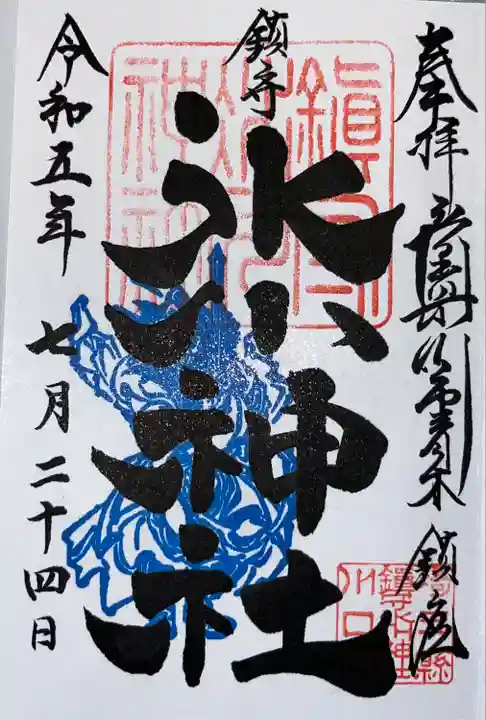 奉拝
鎮座
鎮守
氷川神社
令和五年
七月二十四日
鎮守
氷川
神社